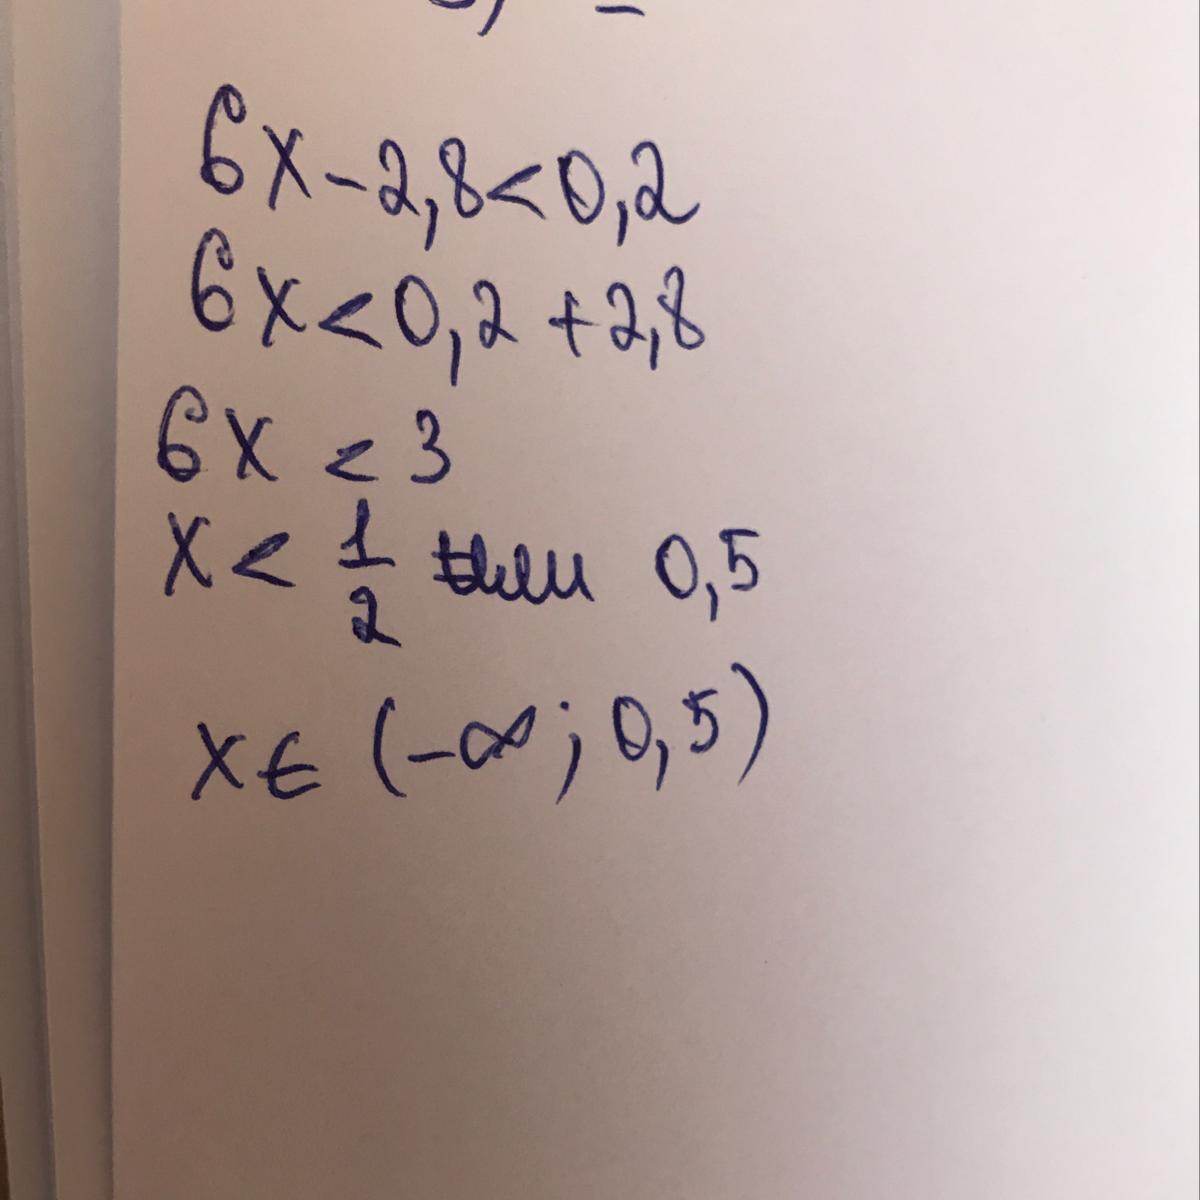 6x-2,8<0,2
6x<0,2+2,8
6x<3
x<1/2 0,5
x∈(-∞;0,5)